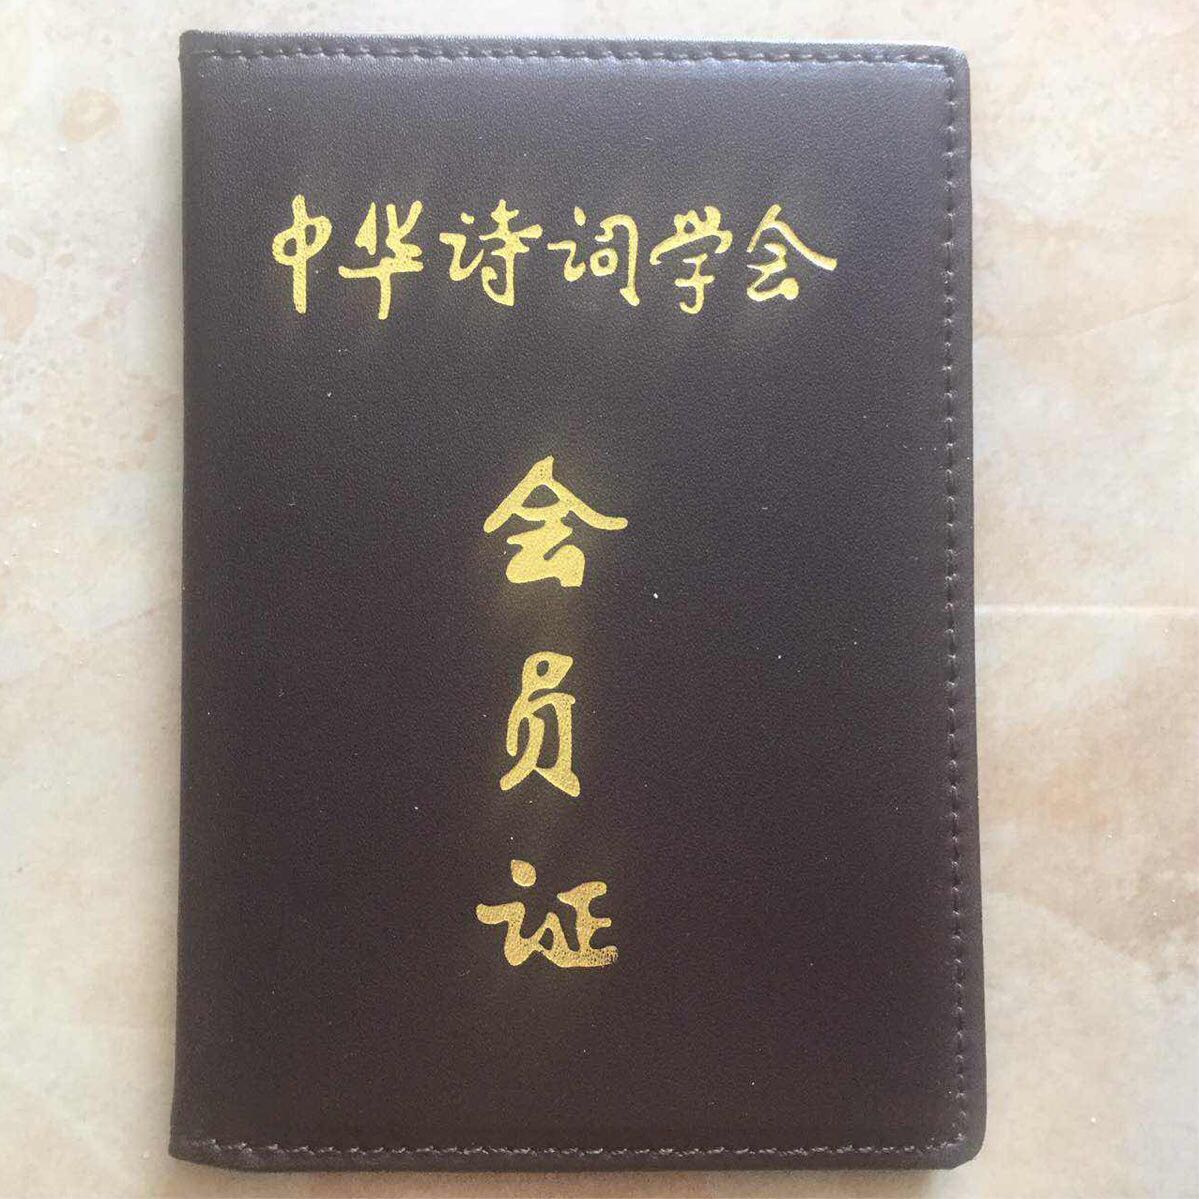 中华诗词学会
会
员
证